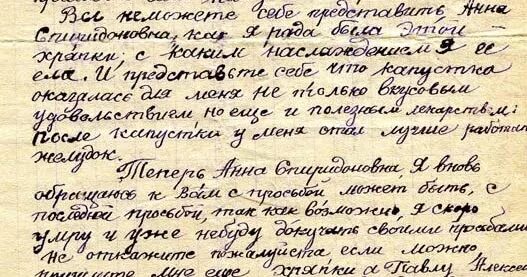 Вы неможете себе представить Анна
Спиридоновна, как я рада была этой
хряпки; с каким наслаждением я ее
ела. И представьте себе что капустка
оказалась для меня не только вкусовым
удовольствием но еще и полезным лекарством:
после капустки у меня стал лучше работат
желудок.
Теперь Анна Спиридоновна, я вновь
обращаюсь к Вам с просьбой может быть, с
последней просьбой, так как возможно, я скоро
умру и уже небуду докучать своими прозбами
Не откажите пожалуйста если можно
пришлите мне еще хряпки а Павлу Алекса